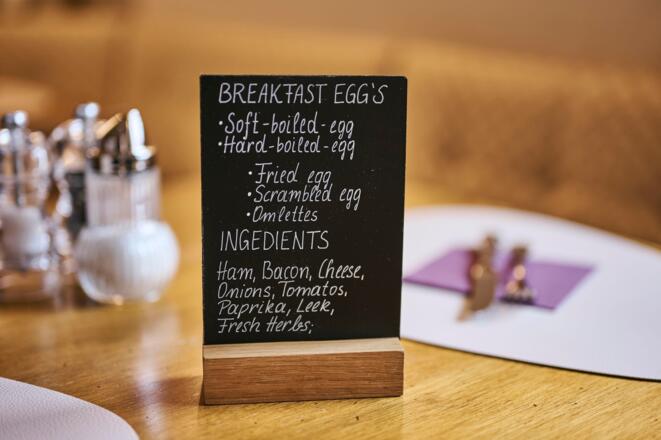 BREAKFAST EGG'S
•Soft-boiled-egg
•Hard-boiled-egg
•Fried egg
•Scrambled egg
•Omlettes
INGEDIENTS
Ham, Bacon, Cheese,
Onions, Tomatos,
Paprika, Leek,
Fresh Herbs;